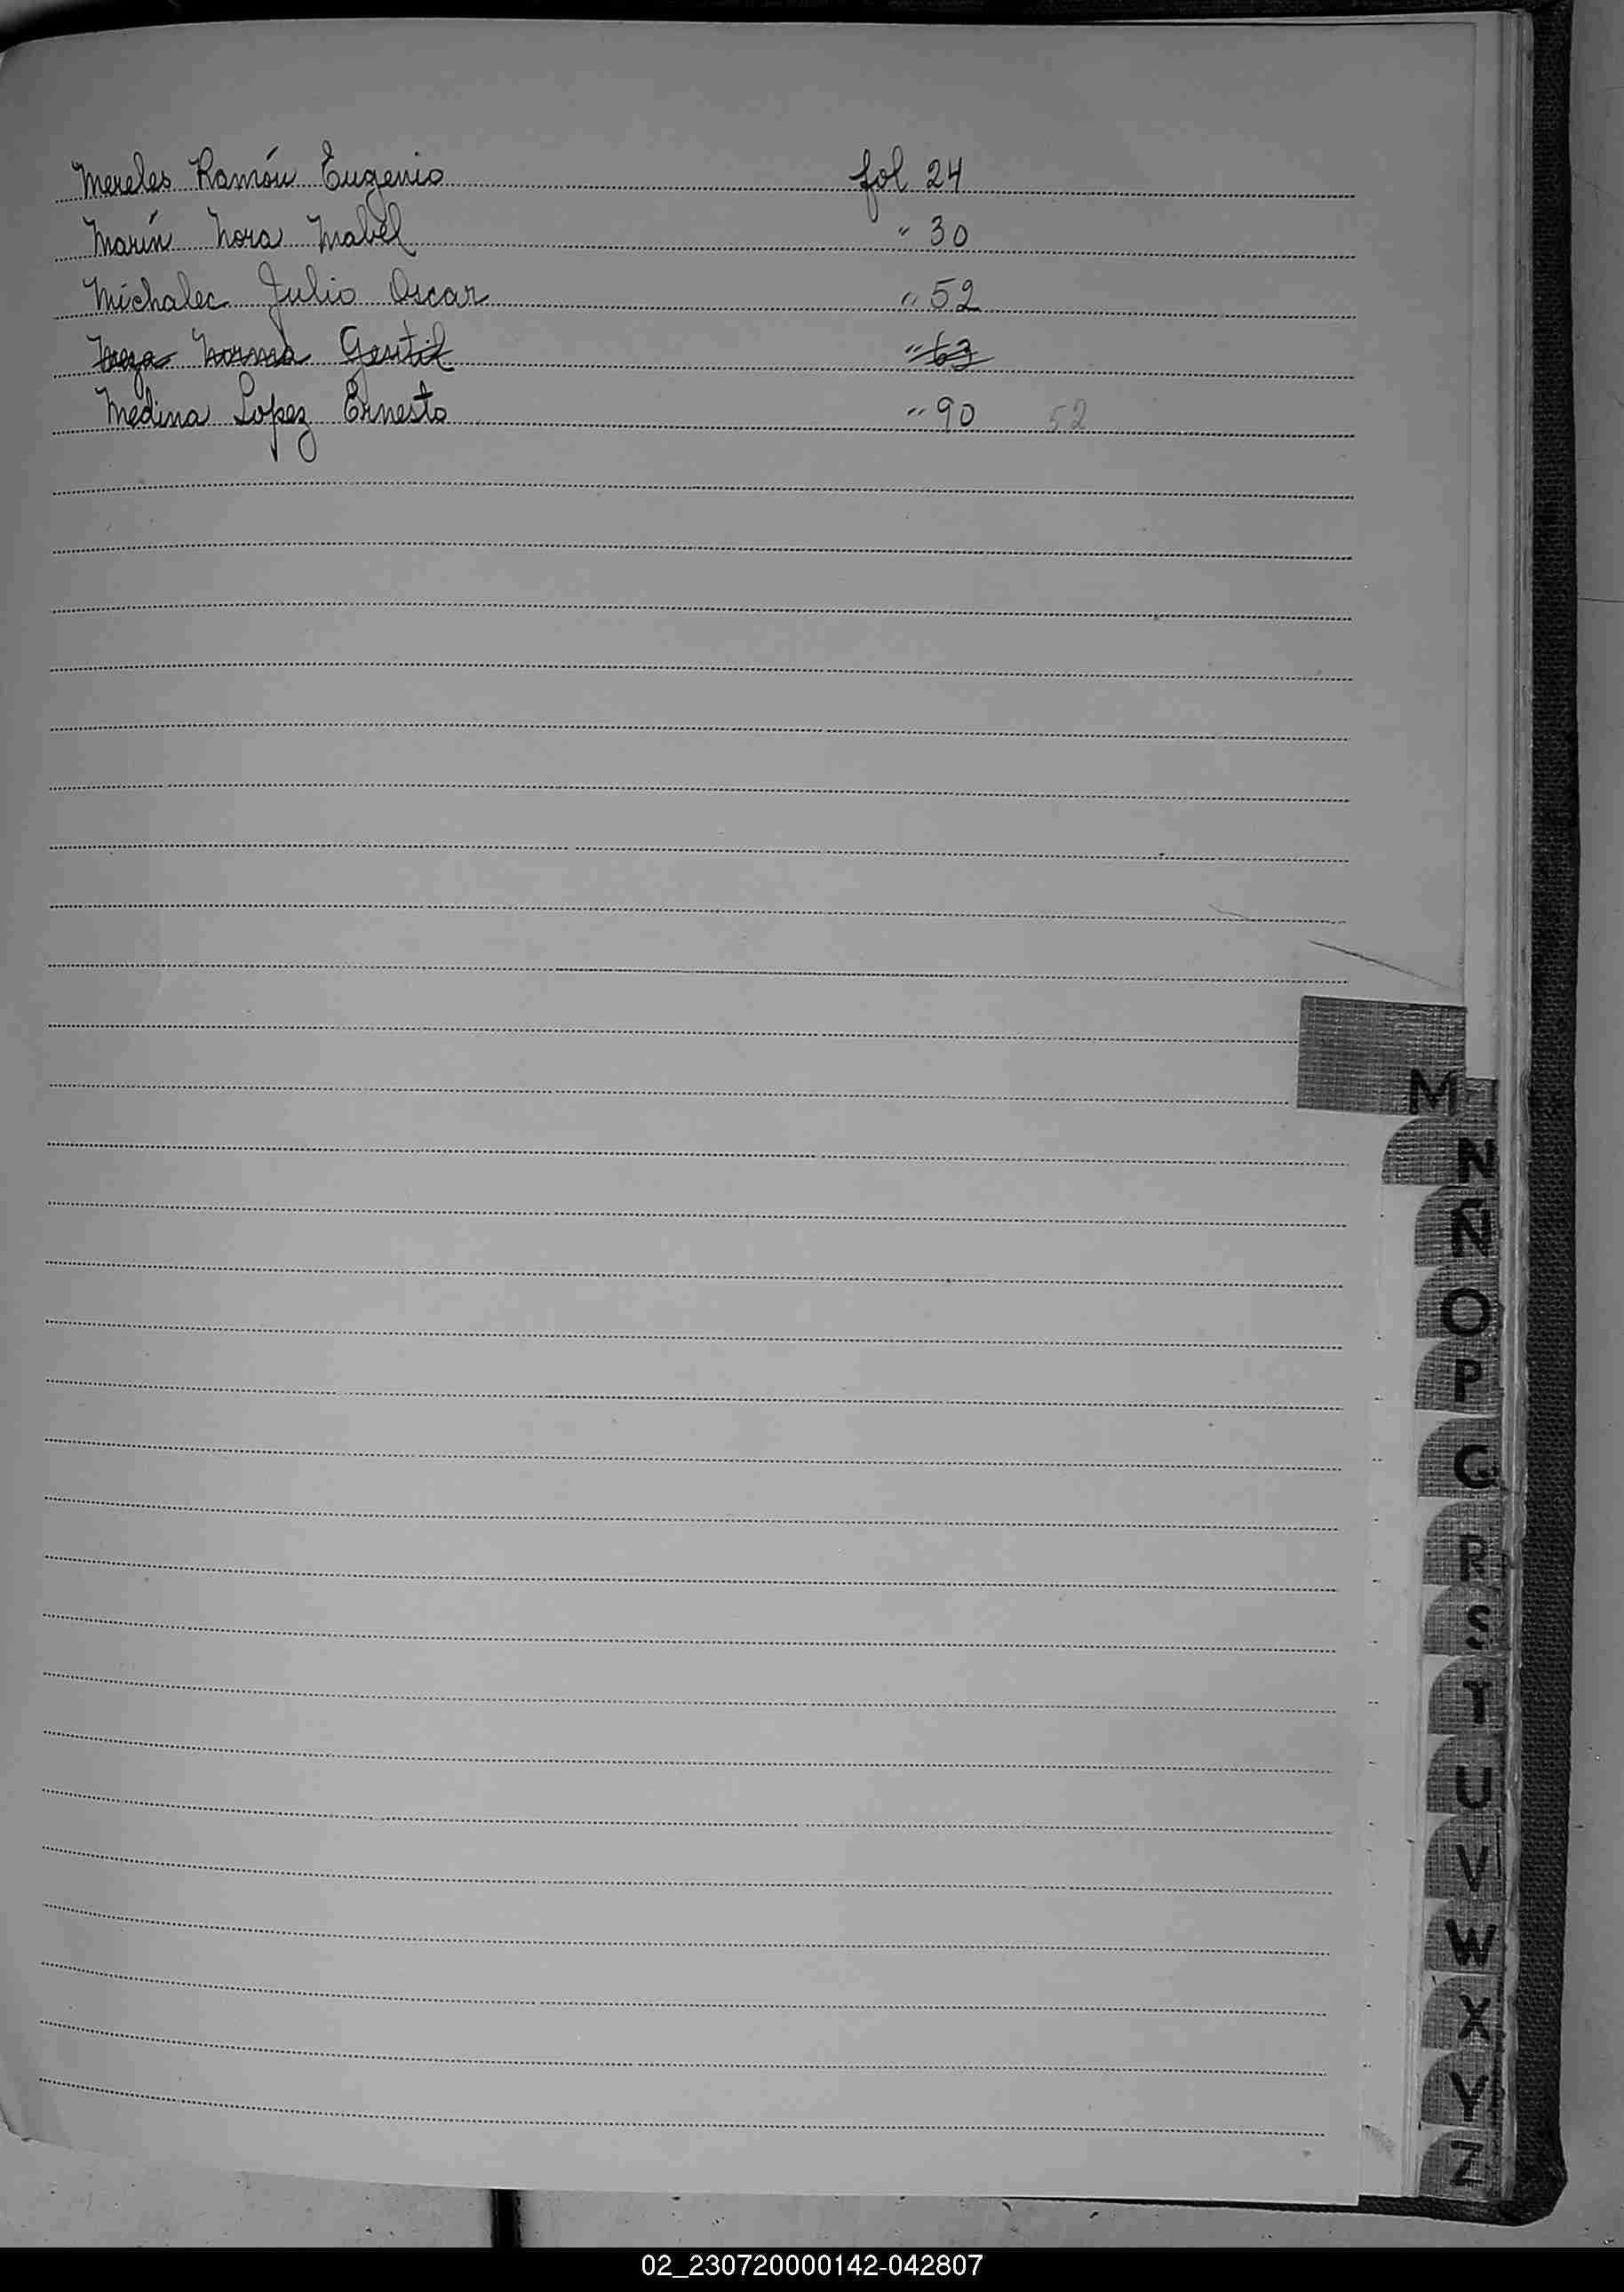 Mereles Ramón Eugenio fol 24
Marín Nora Mabel " 30
Michalec Julio Oscar " 52
Norma Gentil " 63
Medina Lopez Ernesto " 90 52
M
N
Ñ
O
P
R
S
T
U
V
W
X
Y
Z
02_230720000142-042807